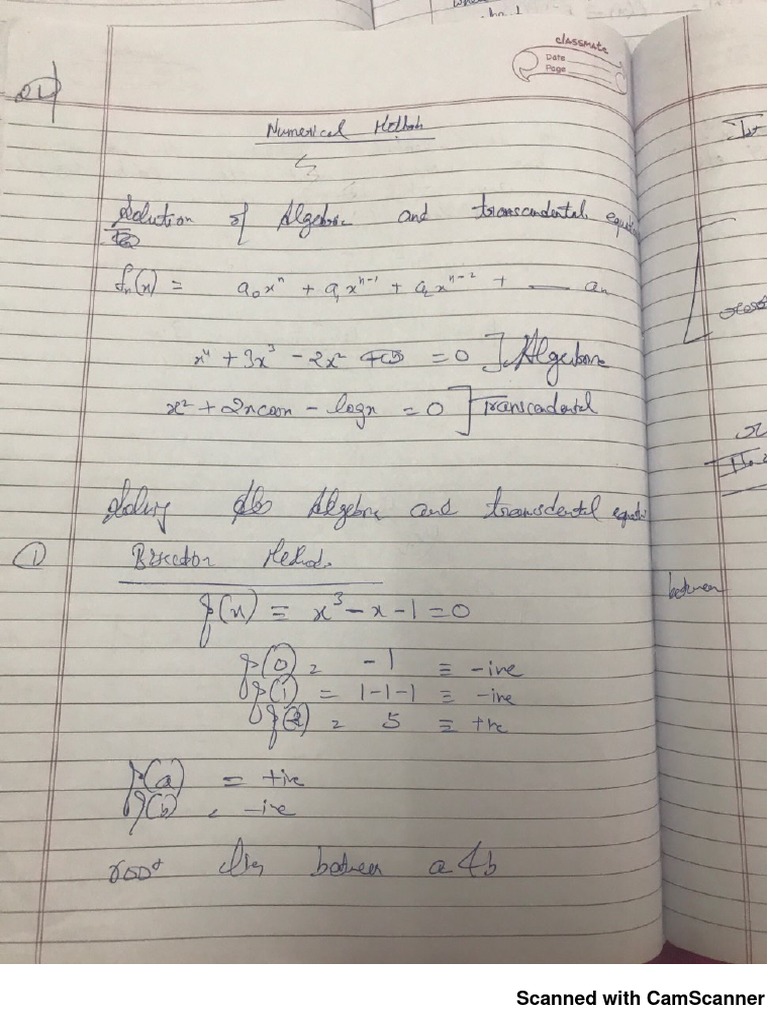 classmate
Date
Page
21
Numerical Methods
Solution of Algebric and transcendental equation
fn(x) = a₀xⁿ + a₁xⁿ⁻¹ + a₂xⁿ⁻² + — aₙ
x⁴ + 3x³ - 2x² = 0 ] Algebric
x² + 2xcosx - logx = 0 ] Transcendental
Solving Algebric and transdental equati
① Bisection Method
f(x) = x³ - x - 1 = 0
f(0) = -1 = -ive
f(1) = 1-1-1 = -ive
f(2) = 5 = +ve
f(a) = +ive
f(b) = -ive
root lies between a & b
between
Scanned with CamScanner